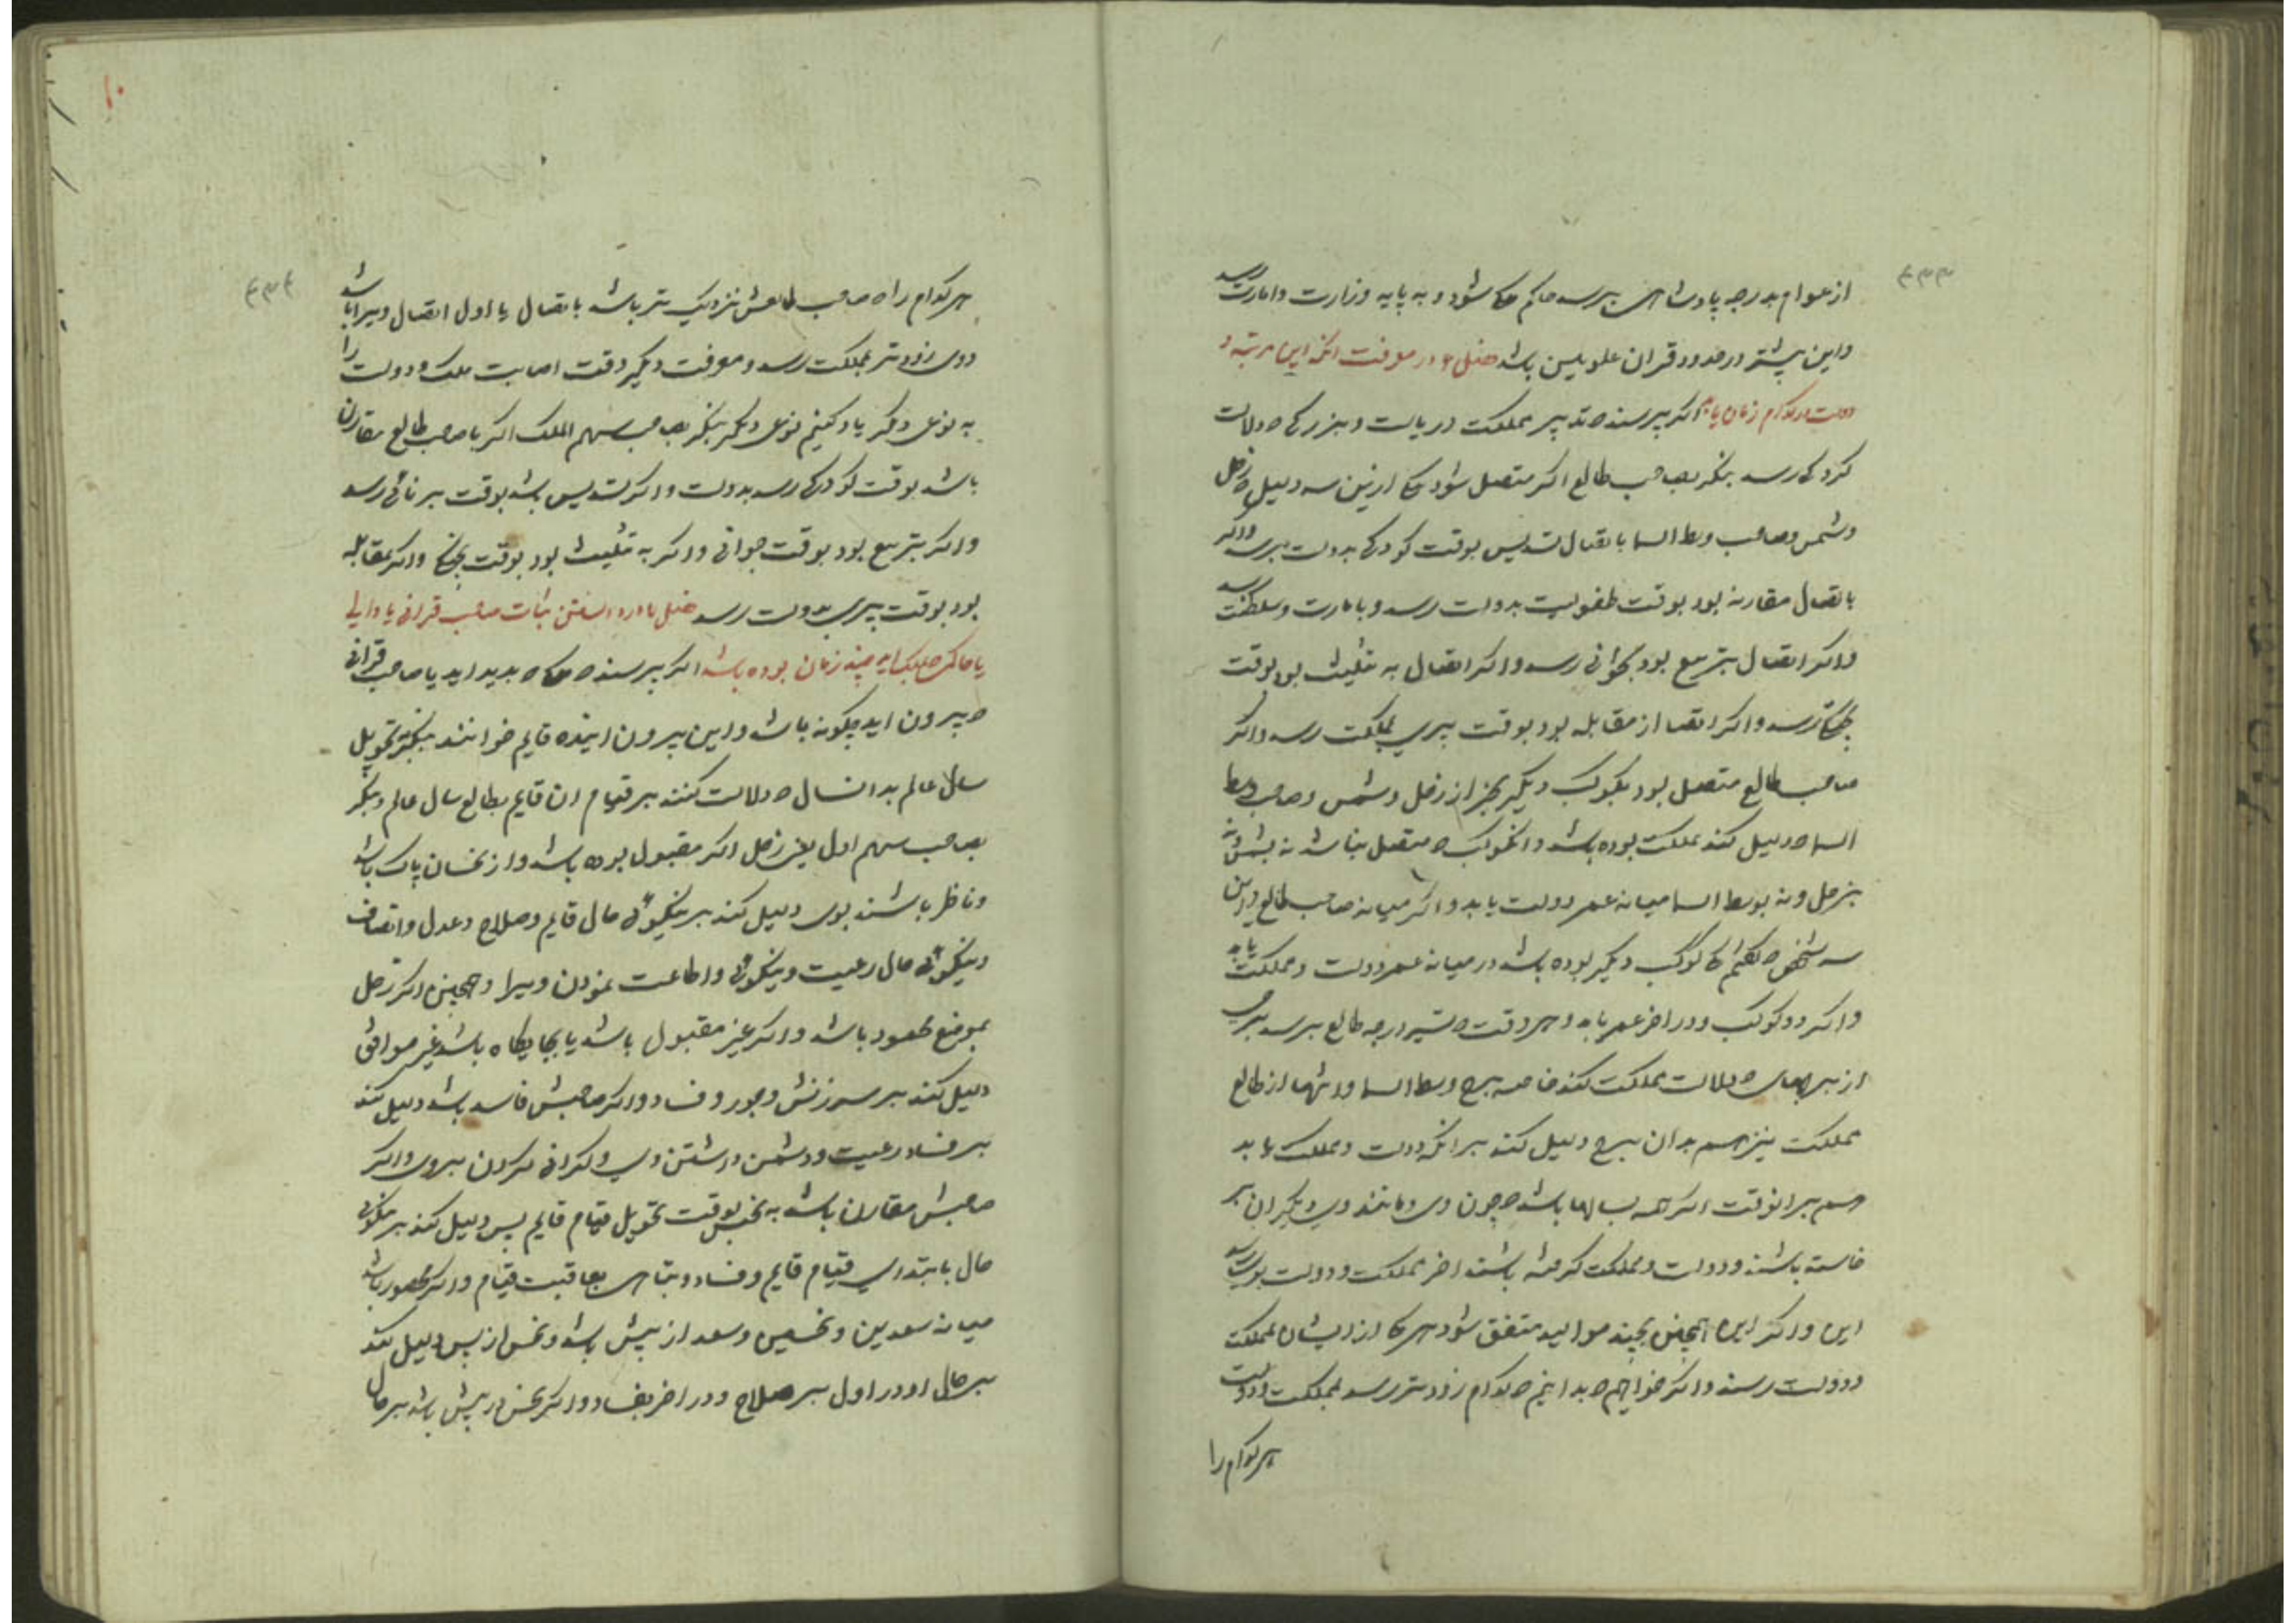 ۶۳۳
از عوام بدرجه پادشاهی برسد حاکم شود و به پایه وزارت و امارت رسد
و این بیشتر در حدود قران علویین باشد فصل در معرفت انکه این مرتبه و
دولت در کدام زمان یابد اکر پرسند تدبیر مملکت و ریاست و بزرکی دلالت
کرد کی رسد بنکر بصاحب طالع اکر متصل شود ازین سه دلیل زحل
و شمس و صاحب وسط السما باتصال تسدیس بوقت کودکی بدولت برسد و اکر
باتصال مقارنه بود بوقت طفولیت بدولت رسد و بامارت و سلطنت رسد
و اکر اتصال بتربیع بود بجوانی رسد و اکر اتصال به تثلیث بود بوقت
رسد و اکر اتصال از مقابله بود بوقت پیری بمملکت رسد و اکر
صاحب طالع متصل بود بکوکب دیکر بجز از زحل و شمس و صاحب وسط
السما دلیل کند مملکت بوده باشد و انکوکب متصل نباشد نه بشمس و نه
بزحل و نه بوسط السما میانه عمر دولت یابد و اکر میانه صاحب طالع و این
سه کوکب دیکر بوده باشد در میانه عمر دولت و مملکت یابد
و اکر دو کوکب بود در اخر عمر یابد و هر وقت تسییر درجه طالع برسد ببرجی
از برجهای دلالت مملکت کند خاصه برج وسط السما و انتها از طالع
مملکت نیز هم بدان برج دلیل کند بر انکه دولت و مملکت یابد
هم بر انوقت اکر چه بسالها باشد چون وی و مانند وی دیکران بر
خاسته باشند و دولت و مملکت کرفته باشند اخر مملکت و دولت بوی رسد
این و اکر این همچنین بچند موالید متفق شود هر یکی از ایشان بمملکت
و دولت رسند و اکر خواهیم بدانیم کدام زودتر رسد بمملکت و دولت
هر کدام را
۶۳۴
هر کدام را صاحب طالعش نزدیک تر باشد باتصال یا اول اتصال ویرا باشد
وی زودتر بمملکت رسد و معرفت دیکر وقت اصابت ملک و دولت را
به نوعی دکر یاد کنیم نوعی دیکر بنکر بصاحب سهم الملک اکر با صاحب طالع مقارن
باشد بوقت کودکی رسد بدولت و اکر تسدیس باشد بوقت برنائی رسد
و اکر بتربیع بود بوقت جوانی و اکر به تثلیث بود بوقت و اکر بمقابله
بود بوقت پیری بدولت رسد فصل در دانستن ثبات صاحب قرانی یا والی
یا حاکمی چند زمان بوده باشد اکر پرسند پدید اید یا صاحب قرانی
بیرون اید چکونه باشد و این بیرون اینده قایم خوانند بنکر بتحویل
سال عالم بدانسال دلالت کنند بر قیام ان قایم بطالع سال عالم و بنکر
بصاحب سهم اول یعنی زحل اکر مقبول بوده باشد و از نحسان پاک باشد
و ناظر باشند بوی دلیل کند بر نیکوئی حال قایم و صلاح و عدل و انصاف
و نیکوئی حال رعیت و نیکوئی و اطاعت نمودن ویرا و همچنین اکر زحل
بموضع صعود باشد و اکر غیر مقبول باشد یا بجایکاه باشد غیر موافق
دلیل کند بر سرزنش و جور و فساد و اکر صاحبش فاسد باشد دلیل کند
بر فساد رعیت و دشمن داشتن وی و کرانی کردن بروی و اکر
صاحبش مقارن باشد به نحس بوقت تحویل قیام قایم پس دلیل کند بر نیکوئی
حال بابتدای قیام قایم و فساد و تباهی بعاقبت قیام و اکر محصور باشد
میانه سعدین و نحسین و سعد از پیش باشد و نحس از پس دلیل کند
بر حال او در اول بر صلاح و در اخر بفساد و اکر نحس در پیش باشد بر حال